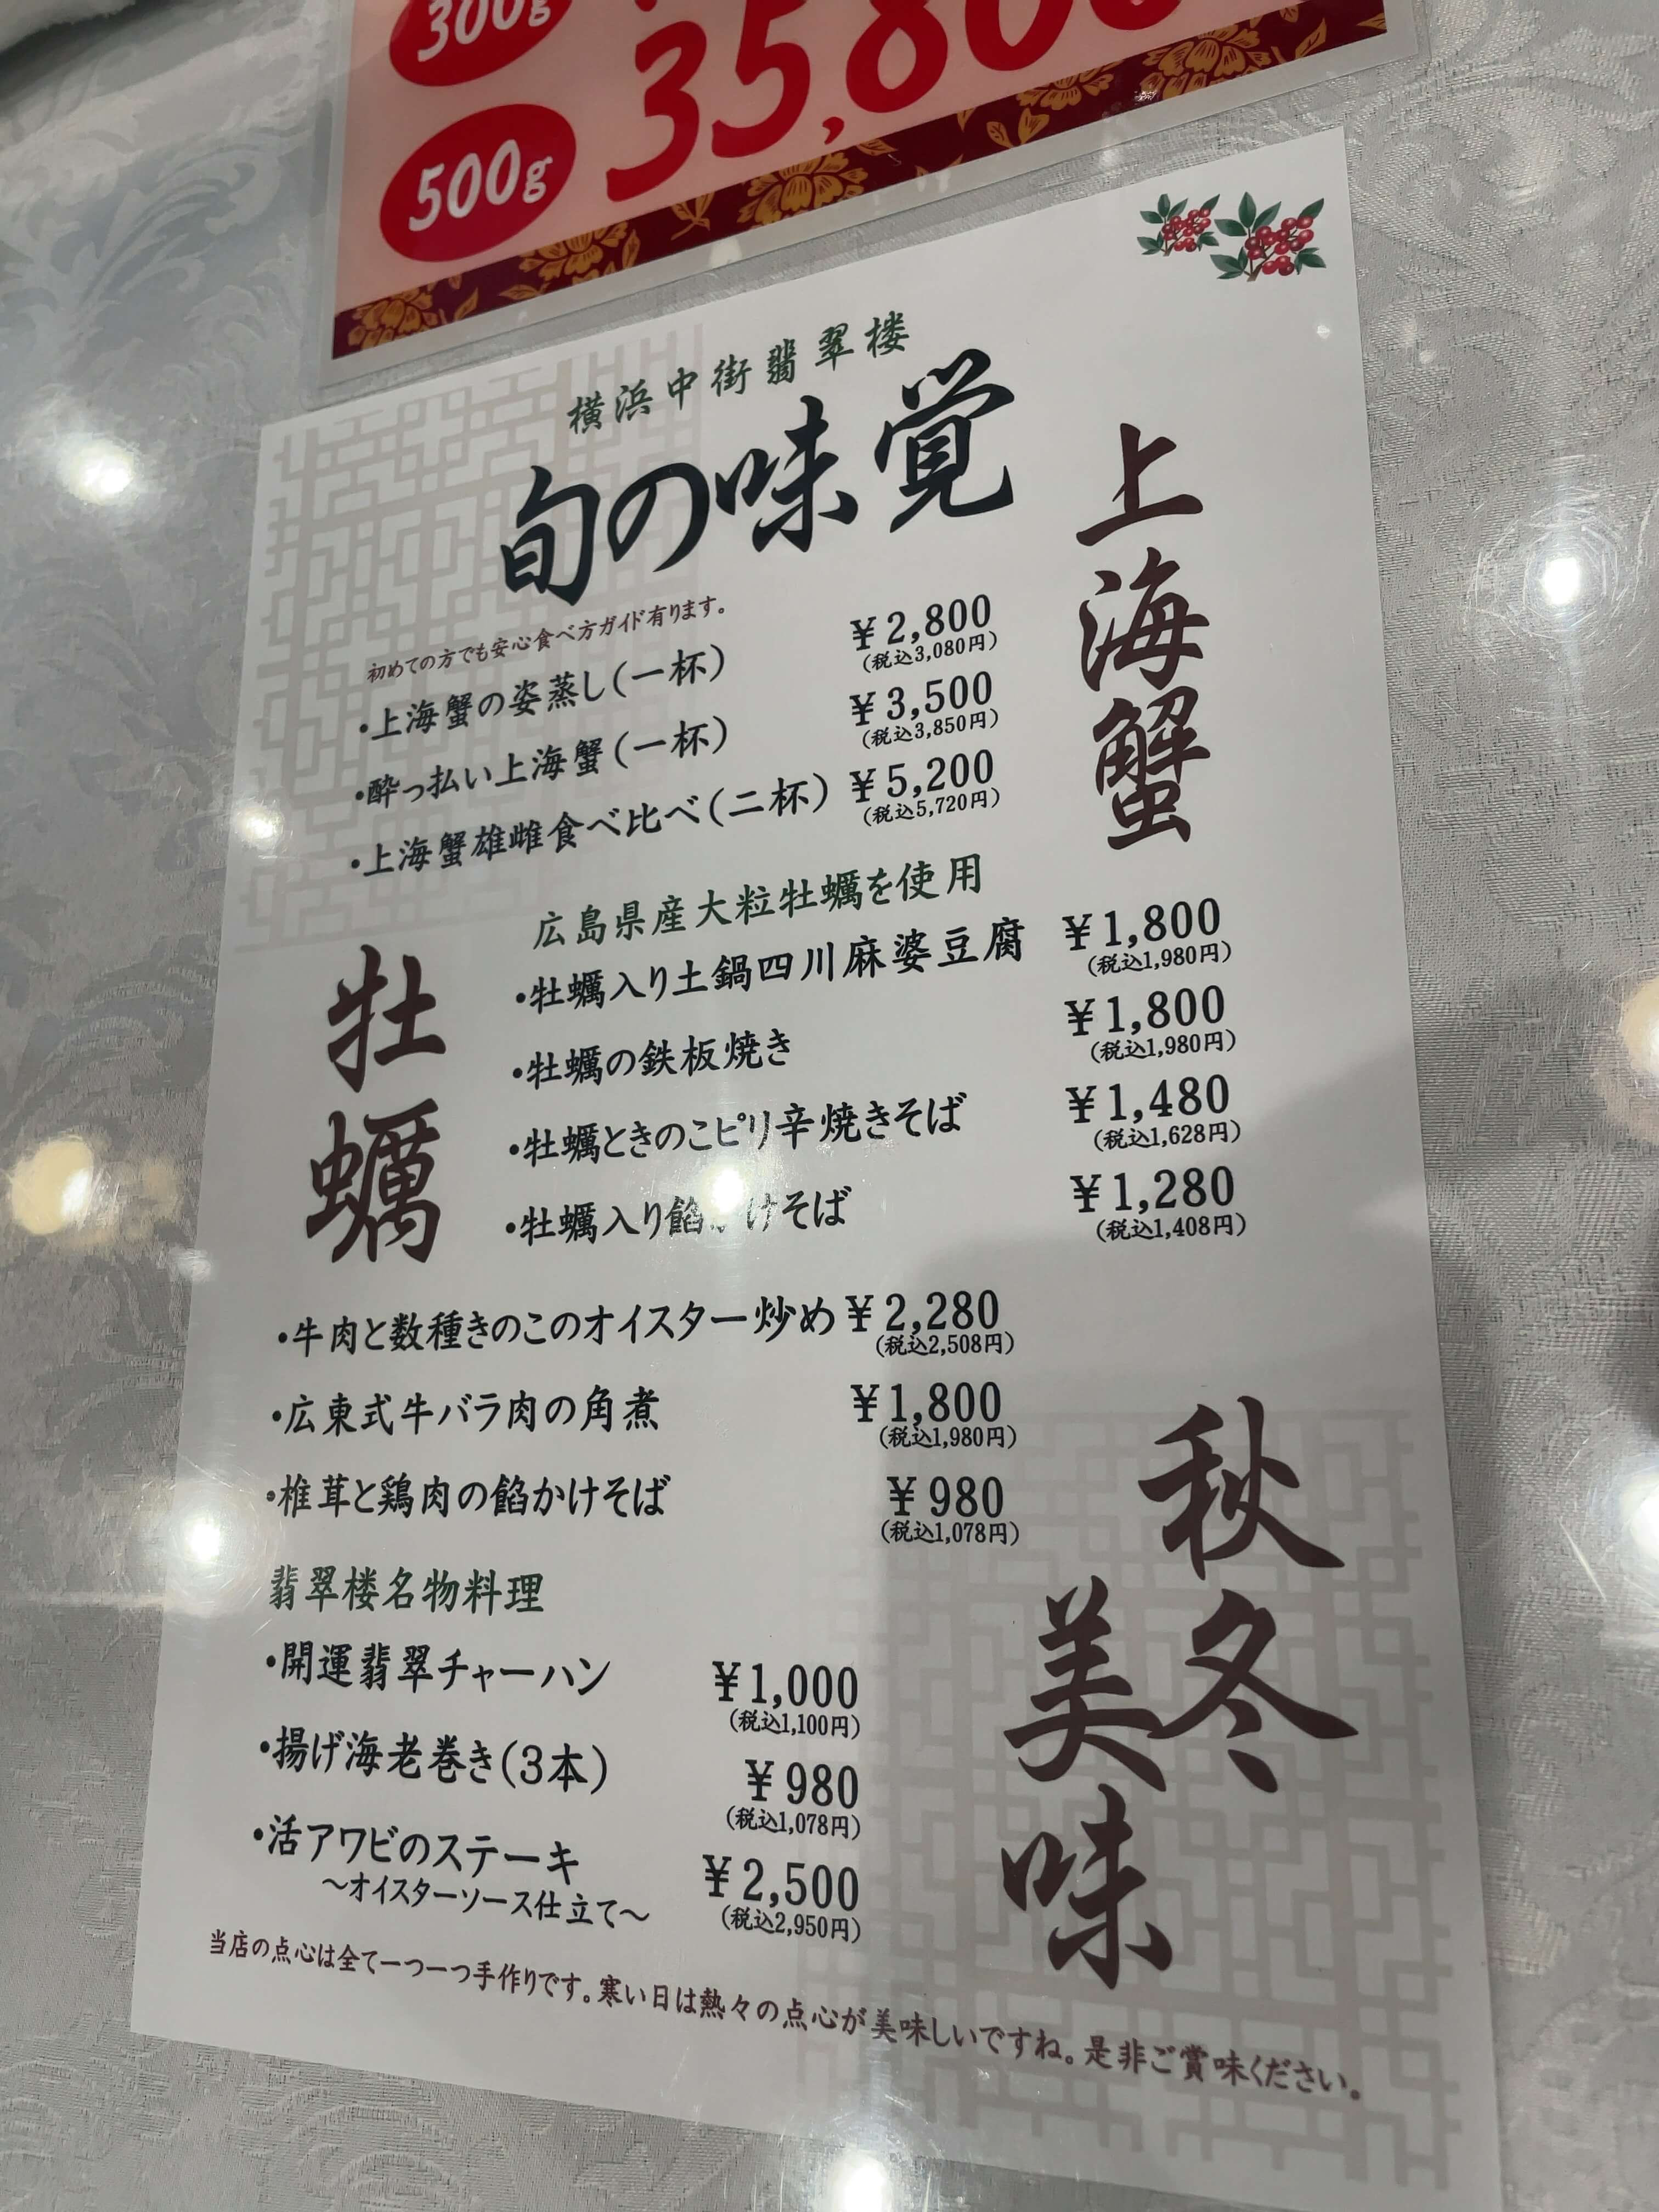 300g
500g 35,80
横浜中街翡翠楼
旬の味覚
上海蟹
初めての方でも安心食べ方ガイド有ります。
・上海蟹の姿蒸し(一杯) ¥2,800
(税込3,080円)
・酔っ払い上海蟹(一杯) ¥3,500
(税込3,850円)
・上海蟹雄雌食べ比べ(二杯) ¥5,200
(税込5,720円)
牡蠣
広島県産大粒牡蠣を使用
・牡蠣入り土鍋四川麻婆豆腐 ¥1,800
(税込1,980円)
・牡蠣の鉄板焼き ¥1,800
(税込1,980円)
・牡蠣ときのこピリ辛焼きそば ¥1,480
(税込1,628円)
・牡蠣入り餡かけそば ¥1,280
(税込1,408円)
秋冬美味
・牛肉と数種きのこのオイスター炒め ¥2,280
(税込2,508円)
・広東式牛バラ肉の角煮 ¥1,800
(税込1,980円)
・椎茸と鶏肉の餡かけそば ¥980
(税込1,078円)
翡翠楼名物料理
・開運翡翠チャーハン ¥1,000
(税込1,100円)
・揚げ海老巻き(3本) ¥980
(税込1,078円)
・活アワビのステーキ ¥2,500
～オイスターソース仕立て～ (税込2,950円)
当店の点心は全て一つ一つ手作りです。寒い日は熱々の点心が美味しいですね。是非ご賞味ください。